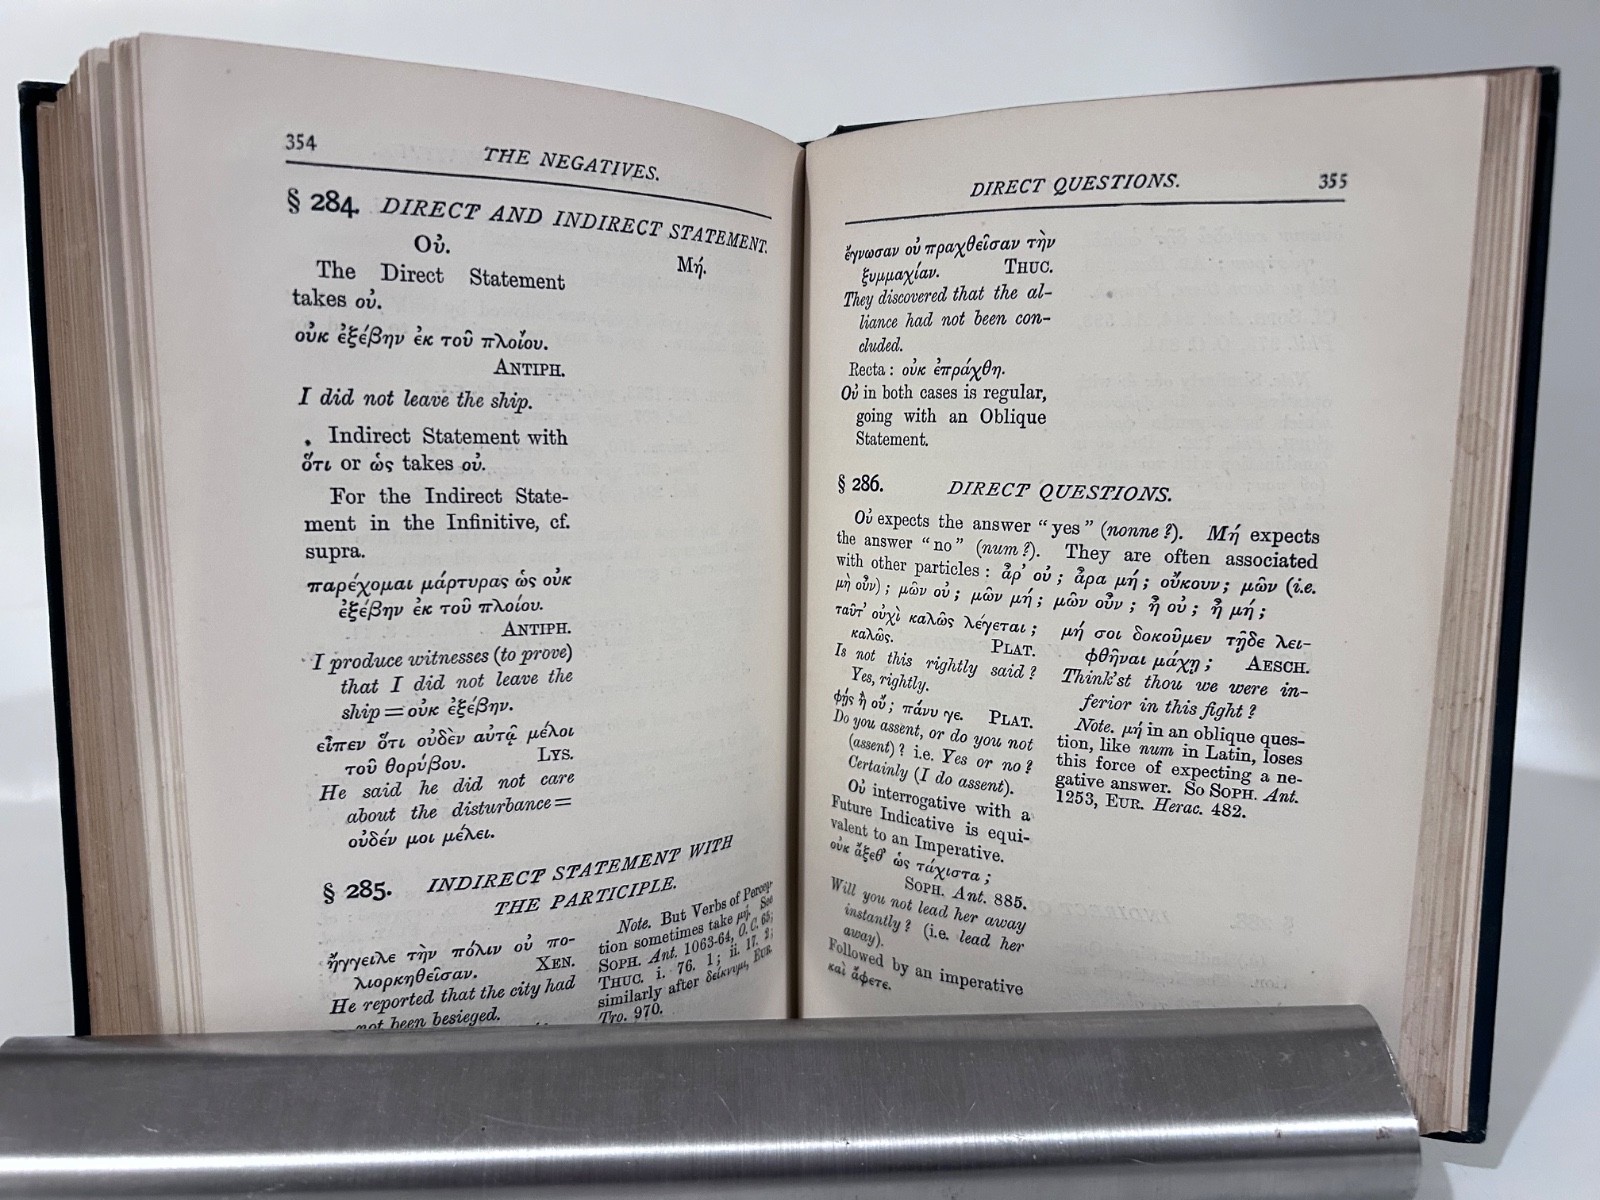 354
THE NEGATIVES.
§ 284. DIRECT AND INDIRECT STATEMENT.
Οὐ.
The Direct Statement
takes οὐ.
οὐκ ἐξέβην ἐκ τοῦ πλοίου.
ANTIPH.
I did not leave the ship.
Indirect Statement with
ὅτι or ὡς takes οὐ.
For the Indirect State-
ment in the Infinitive, cf.
supra.
παρέχομαι μάρτυρας ὡς οὐκ
ἐξέβην ἐκ τοῦ πλοίου.
ANTIPH.
I produce witnesses (to prove)
that I did not leave the
ship = οὐκ ἐξέβην.
εἶπεν ὅτι οὐδὲν αὐτῷ μέλοι
τοῦ θορύβου. LYS.
He said he did not care
about the disturbance =
οὐδέν μοι μέλει.
Μή.
§ 285. INDIRECT STATEMENT WITH
THE PARTICIPLE.
ἤγγειλε τὴν πόλιν οὐ πο-
λιορκηθεῖσαν. XEN.
He reported that the city had
not been besieged.
Note. But Verbs of Percep-
tion sometimes take μή. See
SOPH. Ant. 1063-64, O.C. 65;
THUC. i. 76. 1; ii. 17. 2;
similarly after δείκνυμι, EUR.
Tro. 970.
DIRECT QUESTIONS.
355
ἔγνωσαν οὐ πραχθεῖσαν τὴν
ξυμμαχίαν. THUC.
They discovered that the al-
liance had not been con-
cluded.
Recta : οὐκ ἐπράχθη.
Οὐ in both cases is regular,
going with an Oblique
Statement.
§ 286. DIRECT QUESTIONS.
Οὐ expects the answer “yes” (nonne ?). Μή expects
the answer “no” (num ?). They are often associated
with other particles : ἆρ’ οὐ ; ἆρα μή ; οὔκουν ; μῶν (i.e.
μὴ οὖν) ; μῶν οὐ ; μῶν μή ; μῶν οὖν ; ἦ οὐ ; ἦ μή ;
ταῦτ’ οὐχὶ καλῶς λέγεται ;
καλῶς. PLAT.
Is not this rightly said ?
Yes, rightly.
φῂς ἢ οὔ ; πάνυ γε. PLAT.
Do you assent, or do you not
(assent) ? i.e. Yes or no ?
Certainly (I do assent).
Οὐ interrogative with a
Future Indicative is equi-
valent to an Imperative.
οὐκ ἄξεθ’ ὡς τάχιστα ;
SOPH. Ant. 885.
Will you not lead her away
instantly ? (i.e. lead her
away).
Followed by an imperative
καὶ ἄφετε.
μή σοι δοκοῦμεν τῇδε λει-
φθῆναι μάχῃ ; AESCH.
Think’st thou we were in-
ferior in this fight ?
Note. μή in an oblique ques-
tion, like num in Latin, loses
this force of expecting a ne-
gative answer. So SOPH. Ant.
1253, EUR. Herac. 482.